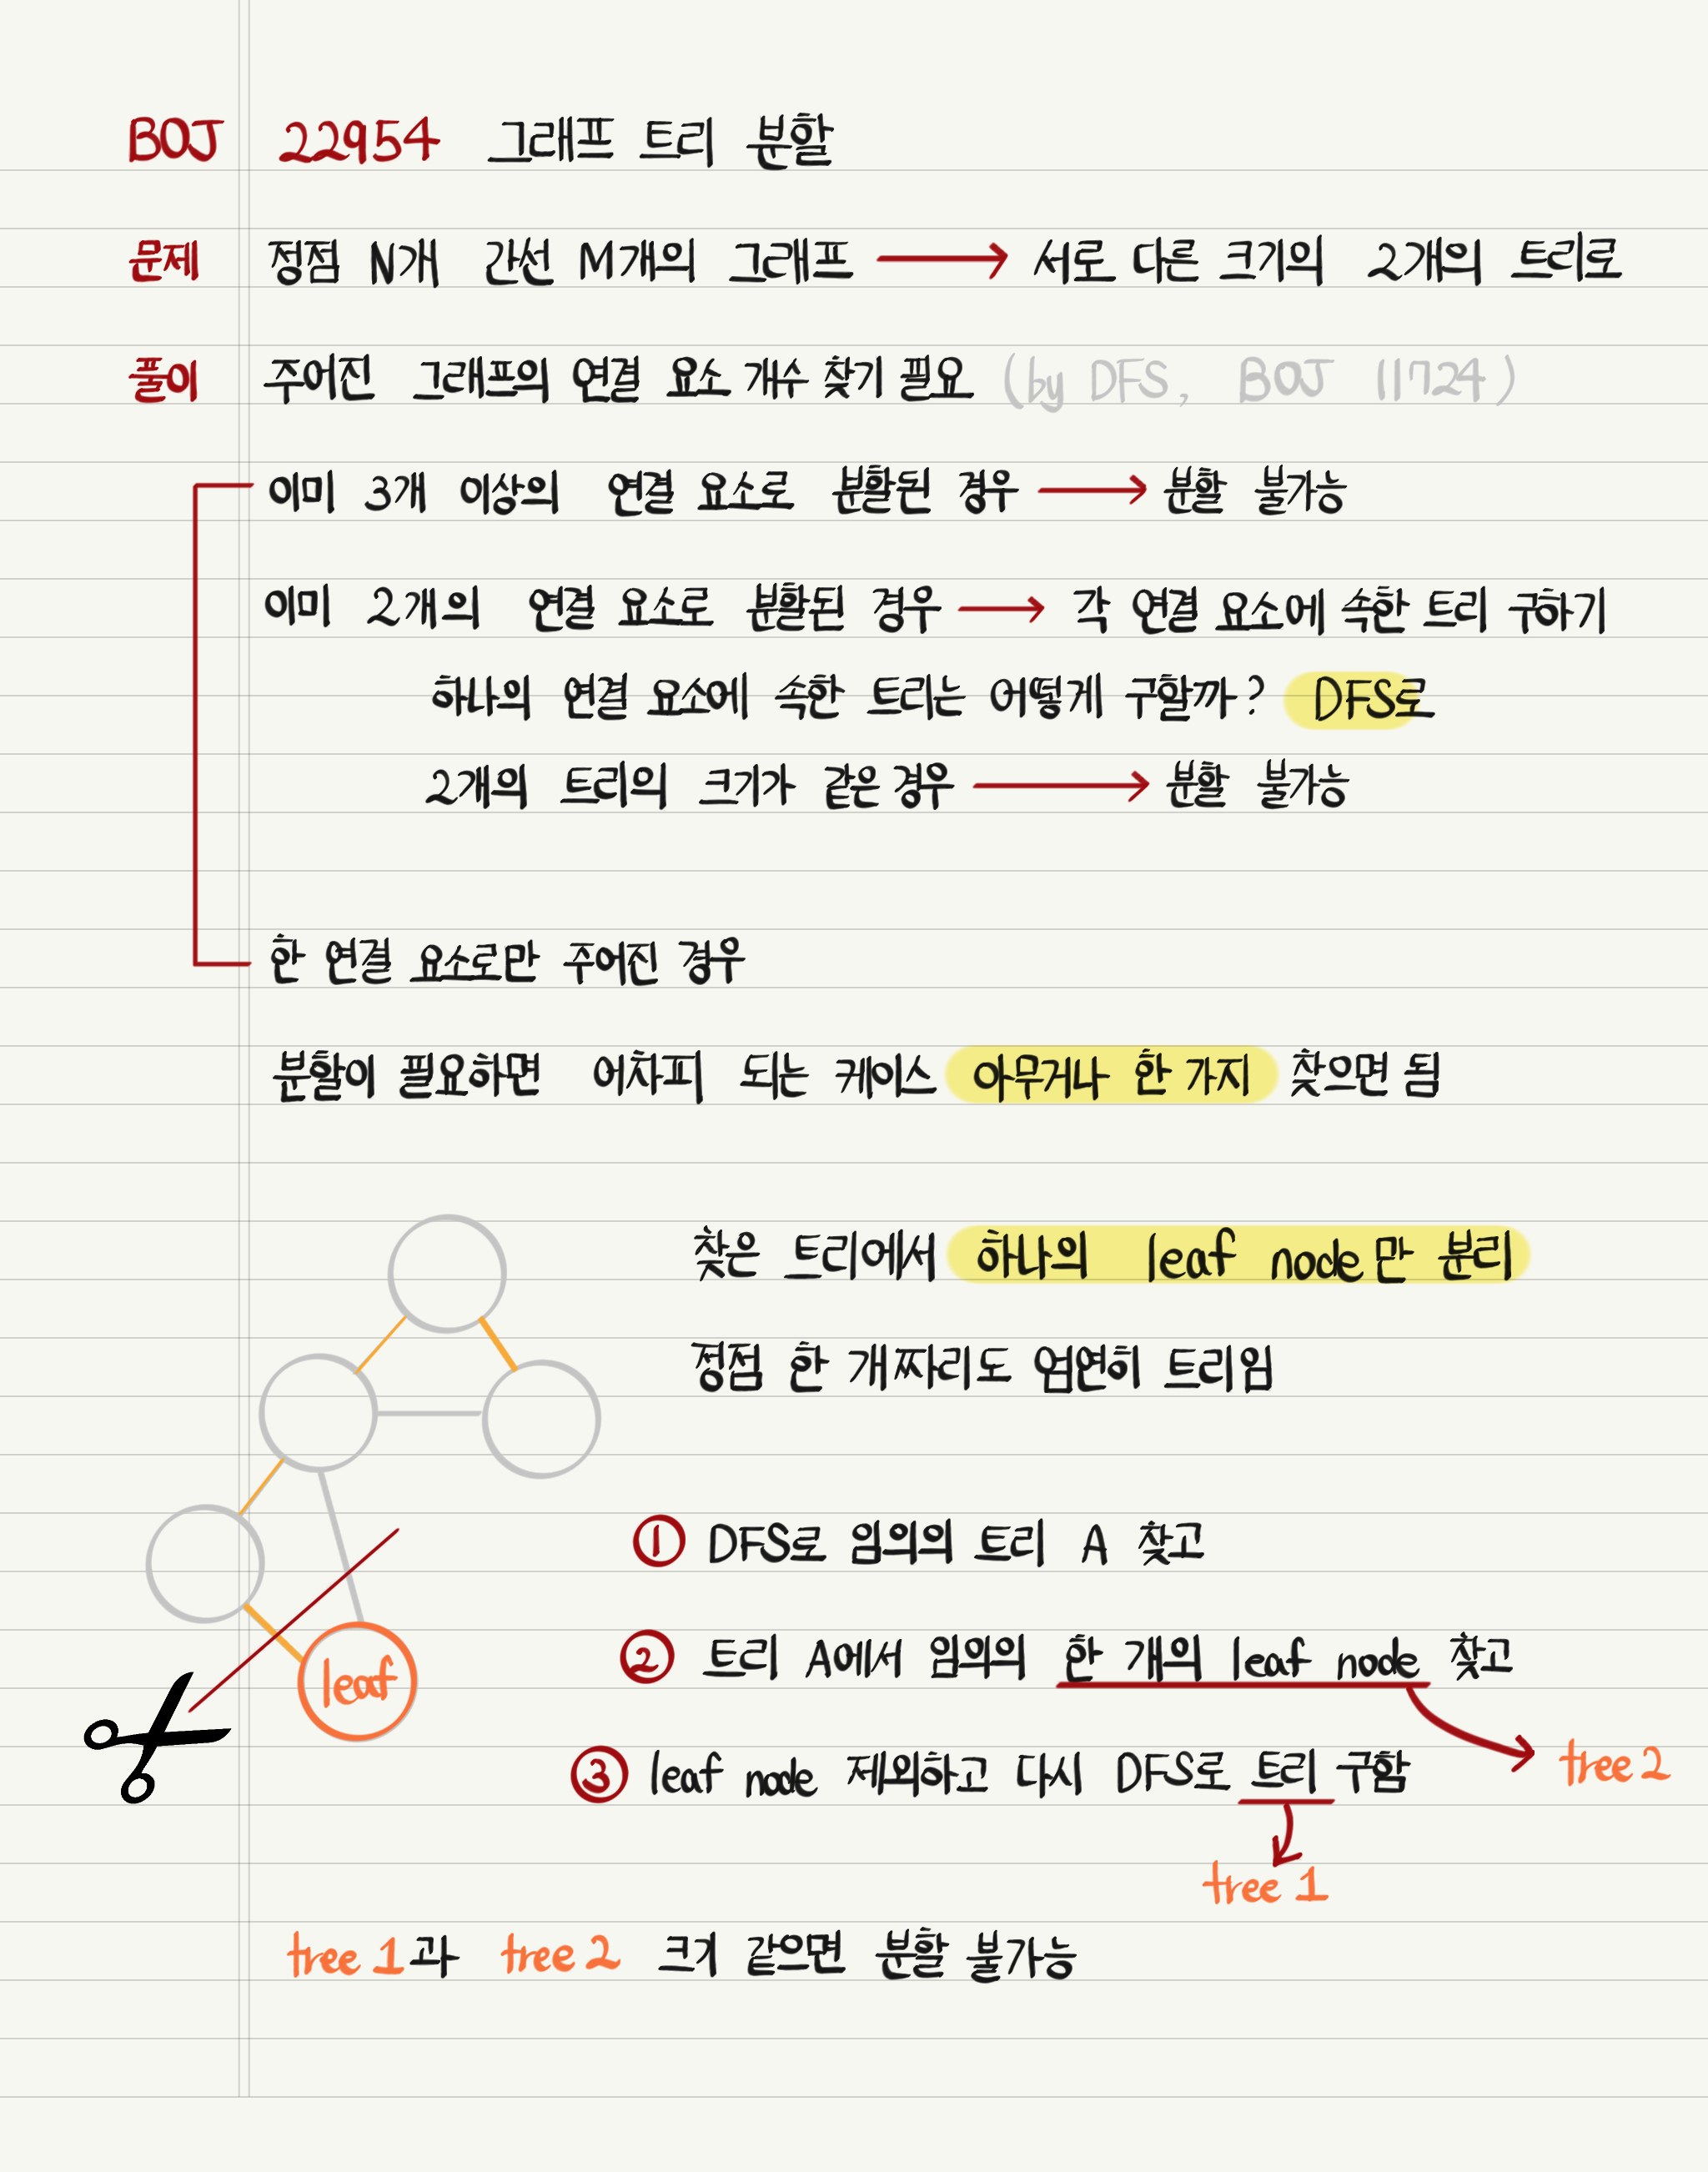 BOJ 22954 그래프 트리 분할
문제 정점 N개 간선 M개의 그래프 → 서로 다른 크기의 2개의 트리로
풀이 주어진 그래프의 연결 요소 개수 찾기 필요 (by DFS, BOJ 11724)
이미 3개 이상의 연결 요소로 분할된 경우 → 분할 불가능
이미 2개의 연결 요소로 분할된 경우 → 각 연결 요소에 속한 트리 구하기
하나의 연결 요소에 속한 트리는 어떻게 구할까? DFS로
2개의 트리의 크기가 같은 경우 → 분할 불가능
한 연결 요소로만 주어진 경우
분할이 필요하면 어차피 되는 케이스 아무거나 한 가지 찾으면 됨
찾은 트리에서 하나의 leaf node만 분리
정점 한 개짜리도 엄연히 트리임
① DFS로 임의의 트리 A 찾고
② 트리 A에서 임의의 한 개의 leaf node 찾고
leaf
③ leaf node 제외하고 다시 DFS로 트리 구함
tree 2
tree 1
tree 1과 tree 2 크기 같으면 분할 불가능